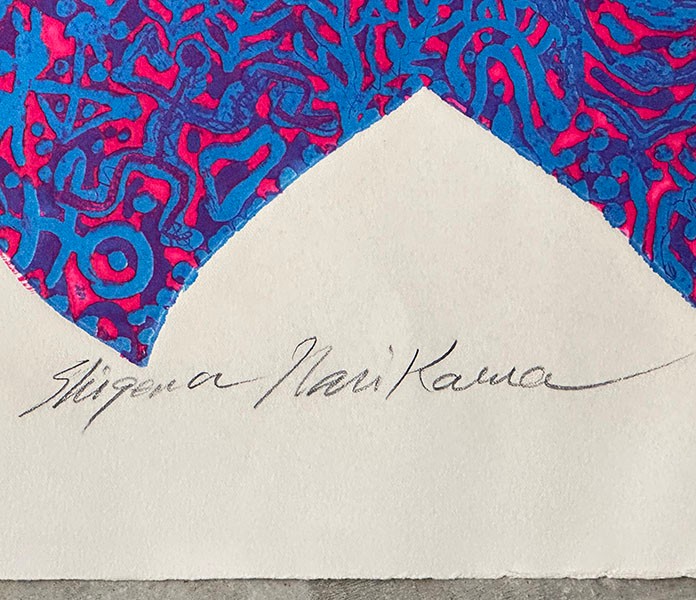 Shigeru NariKawa